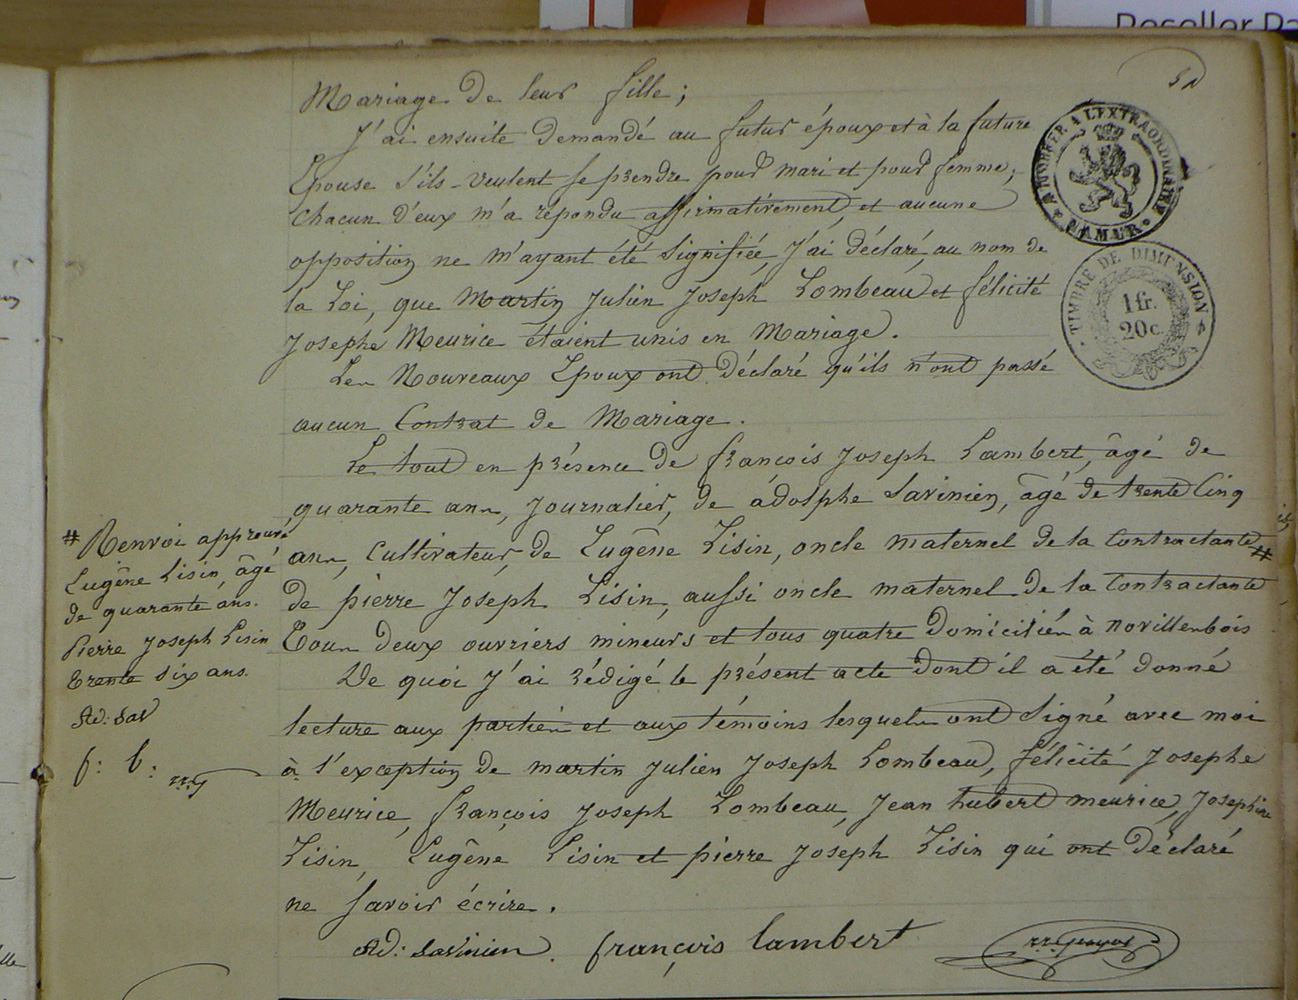 Reseller Pa
Mariage de leur fille;
J'ai ensuite demandé au futur époux et à la future
Epouse s'ils veulent se prendre pour mari et pour femme;
Chacun d'eux m'a répondu affirmativement, et aucune
opposition ne m'ayant été signifiée, J'ai déclaré, au nom de
la Loi, que Martin Julien Joseph Lombeau et félicité
Josephe Meurice étaient unis en Mariage.
Les Nouveaux Epoux ont déclaré qu'ils n'ont passé
aucun Contrat de Mariage.
Le tout en présence de françois Joseph Lambert, âgé de
quarante ans, Journalier, de adolphe Savinien, âgé de trente Cinq
ans, Cultivateur, de Eugêne Lisin, oncle maternel de la Contractante #
de pierre Joseph Lisin, aussi oncle maternel de la Contractante
Tous deux ouvriers mineurs et tous quatre Domiciliés à novillenbois
De quoi J'ai rédigé le présent acte dont il a été donné
lecture aux parties et aux témoins lesquels ont signé avec moi
à l'exception de martin Julien Joseph Lombeau, félicité Josephe
Meurice, françois Joseph Lombeau, Jean hubert meurice, Josephine
Lisin, Eugêne Lisin et pierre Joseph Lisin qui ont déclaré
ne savoir écrire.
Ad: Savinien. françois lambert
# Renvoi approuvé
Eugêne Lisin, âgé
de quarante ans.
Pierre Joseph Lisin
trente six ans.
Ad: Sav
f: l:
A TIMBRER A L'EXTRAORDINAIRE
NAMUR
TIMBRE DE DIMENSION
1 fr.
20 c.